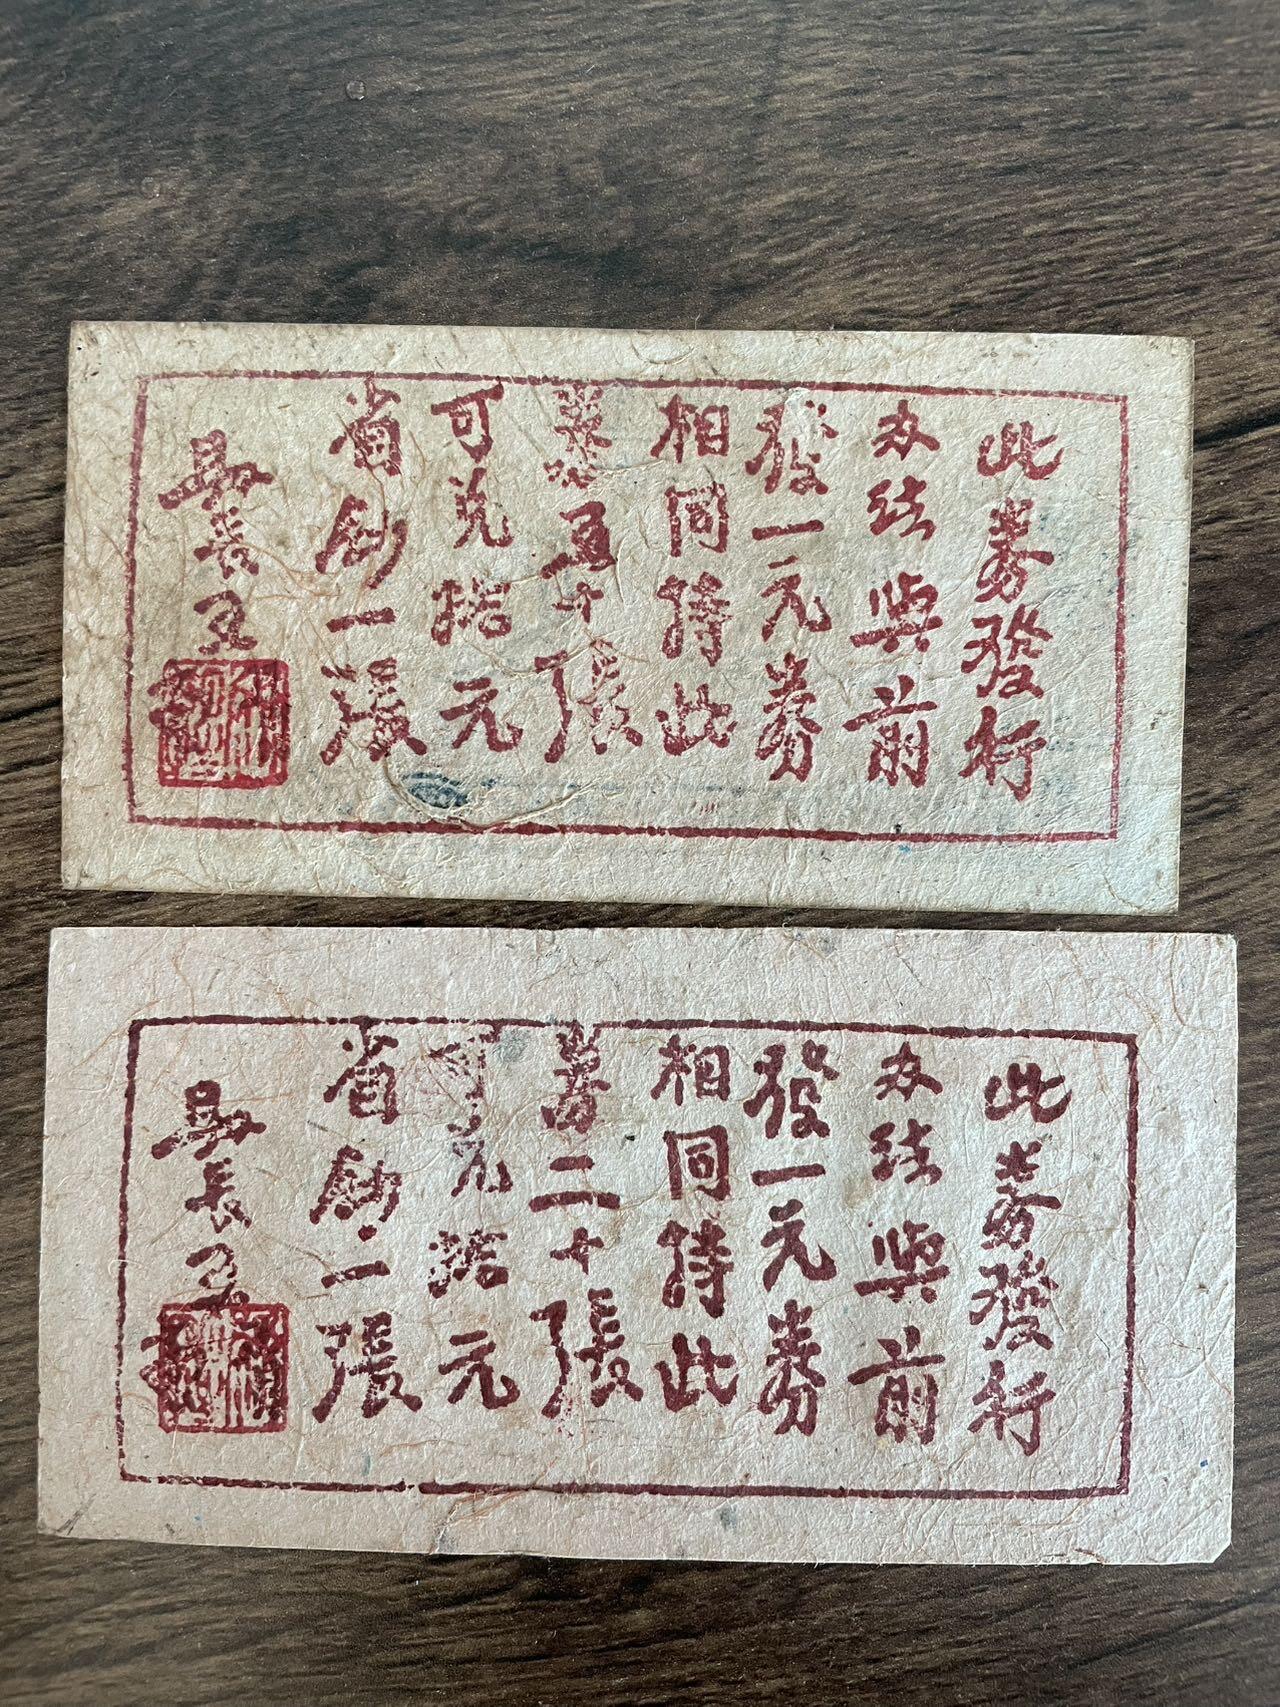 此券發行
办法與前
發一元券
相同持此
券五十張
可兑拾元
省鈔一張
縣長王
此券發行
办法與前
發一元券
相同持此
券二十張
可兑拾元
省鈔一張
縣長王